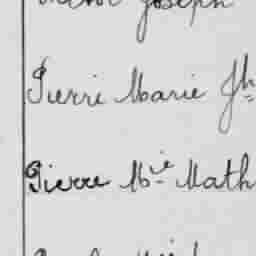 Joseph
Pierre Marie Jh
Pierre Mie Math